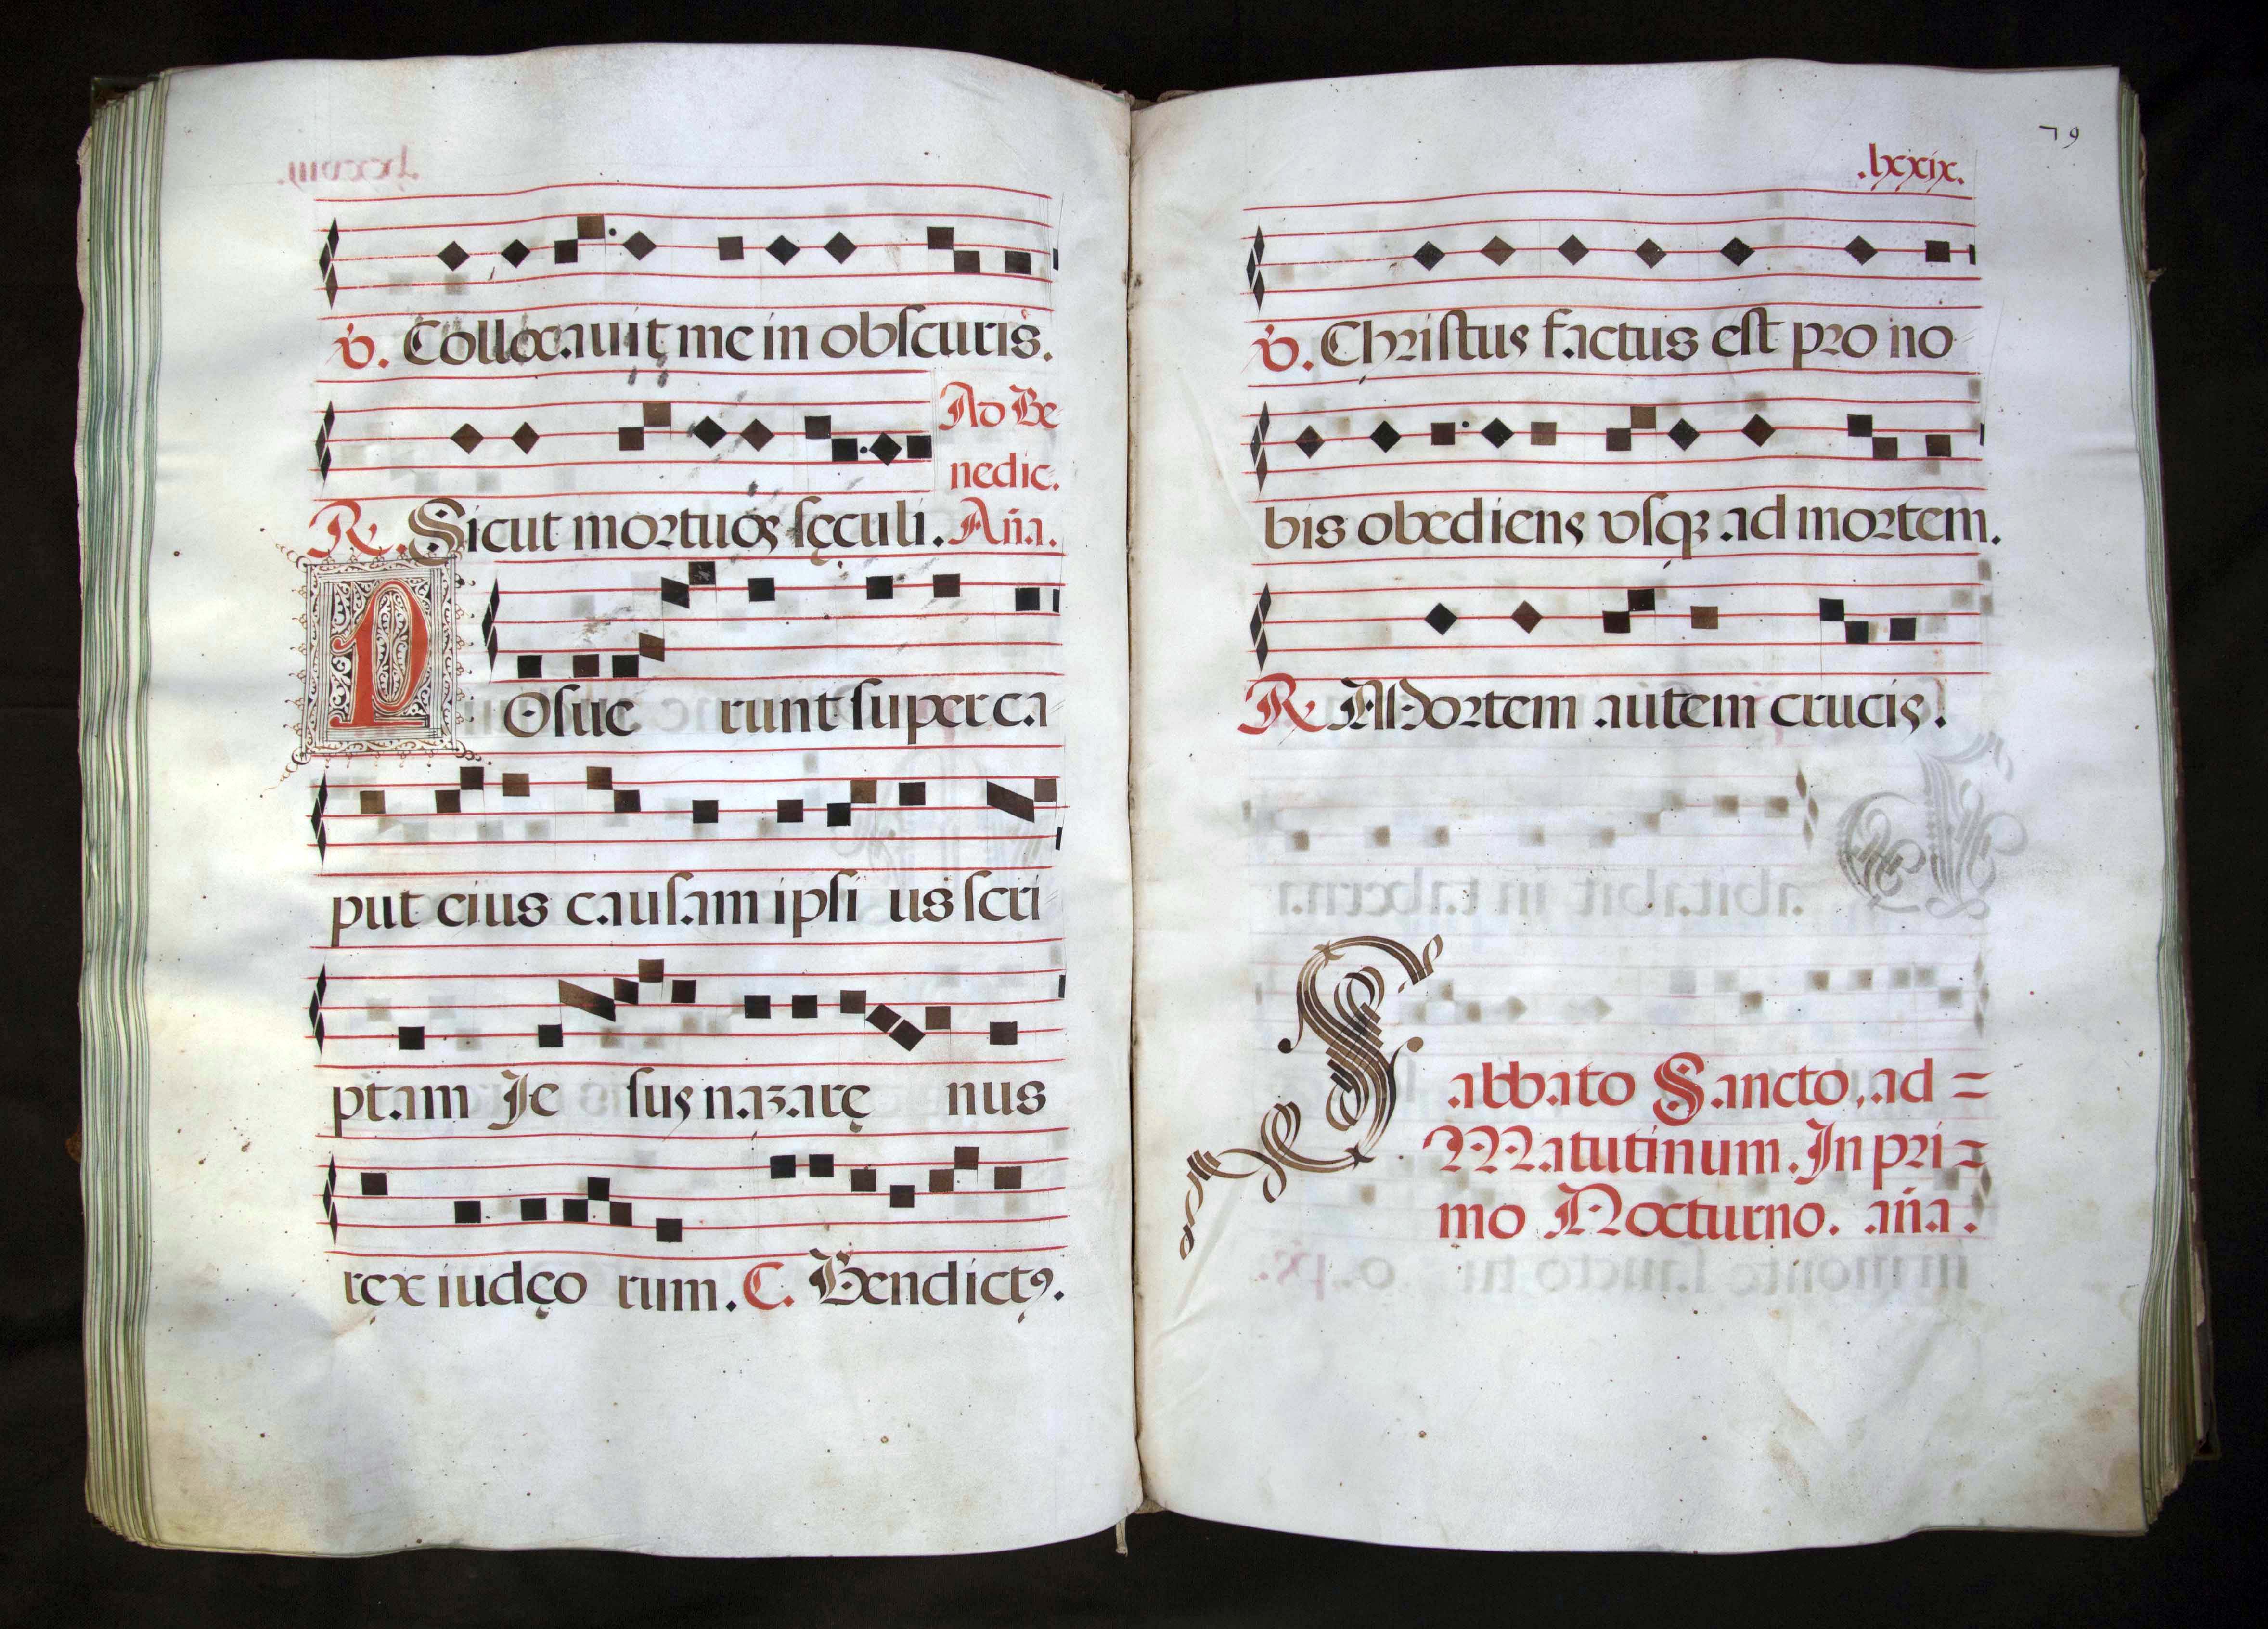 ℣. Collocauit me in obscuris.
Ad Be
nedic.
℟. Sicut mortuos sęculi. Aña.
POsue runt super ca
put eius causam ipsi us scri
ptam Je sus nazarę nus
rex iudęo rum. C. Benedictꝰ.
79
.lxxix.
℣. Christus factus est pro no
bis obediens vsqꝫ ad mortem.
℟. Mortem autem crucis.
Sabbato Sancto, ad =
Matutinum. In pri=
mo Nocturno. aña.